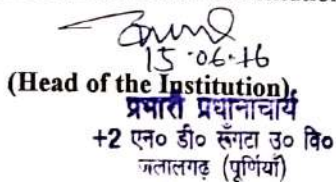 15-06-16
(Head of the Institution)
प्रभारी प्रधानाचार्य
+2 एन० डी० रूँगटा उ० वि०
जलालगढ़ (पूर्णियाँ)